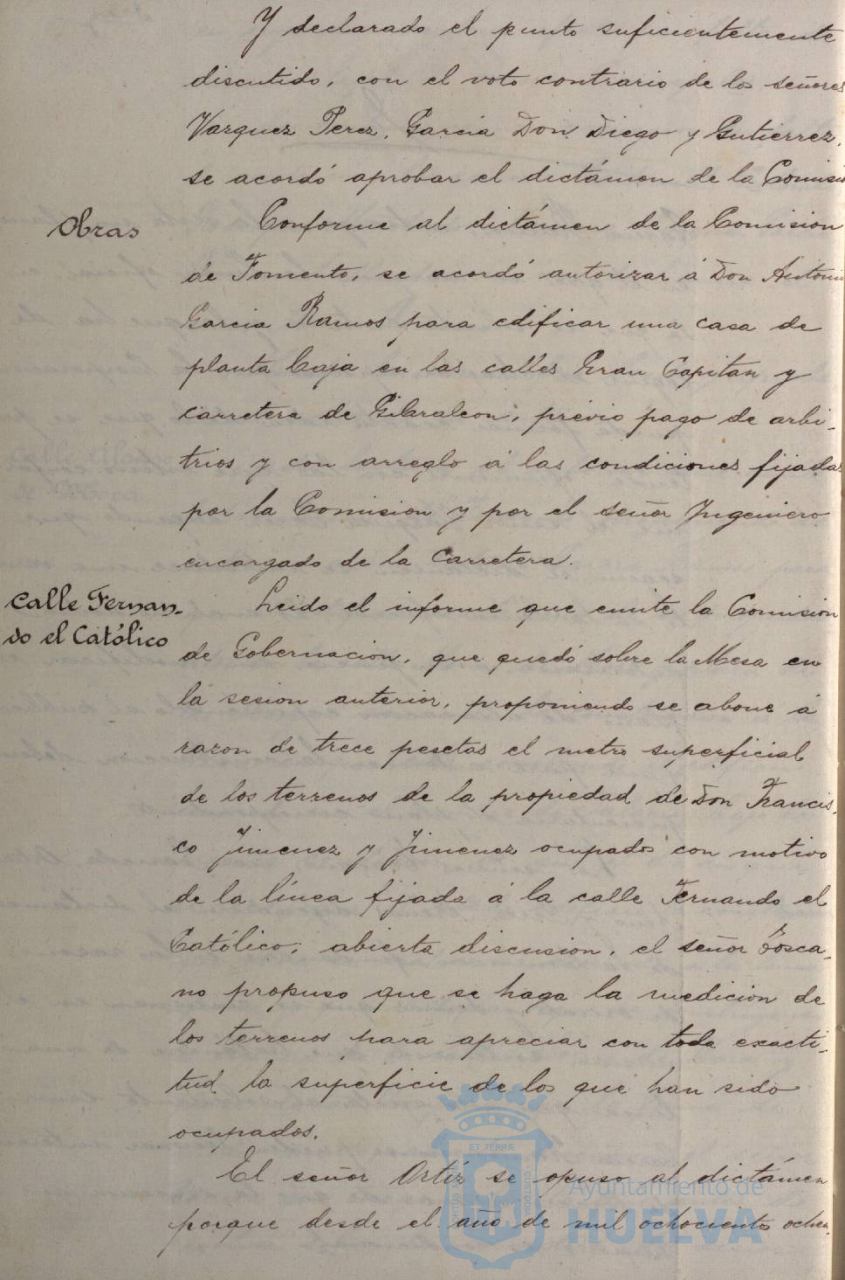 Y declarado el punto suficientemente
discutido, con el voto contrario de los señores
Vazquez Perez, Garcia Don Diego y Gutierrez,
se acordó aprobar el dictámen de la Comisi
Obras
Conforme al dictámen de la Comision
de Fomento, se acordó autorizar á Don Antoni
Garcia Ramos para edificar una casa de
planta baja en las calles Gran Capitan y
Carretera de Gibraleon, prévio pago de arbi-
trios y con arreglo á las condiciones fijadas
por la Comision y por el señor Ingeniero
encargado de la Carretera.
Calle Fernan-
do el Católico
Leido el informe que emite la Comisión
de Gobernacion, que quedó sobre la Mesa en
la sesion anterior, proponiendo se abone á
razon de trece pesetas el metro superficial
de los terrenos de la propiedad de Don Francis-
co Jimenez y Jimenez ocupados con motivo
de la línea fijada á la calle Fernando el
Católico; abierta discusion, el señor Tosca-
no propuso que se haga la medición de
los terrenos para apreciar con toda exacti-
tud la superficie de los que han sido
ocupados.
El señor Ortíz se opuso al dictámen
porque desde el año de mil ochociento ochen
ET TERRÆ
Ayuntamiento de
HUELVA